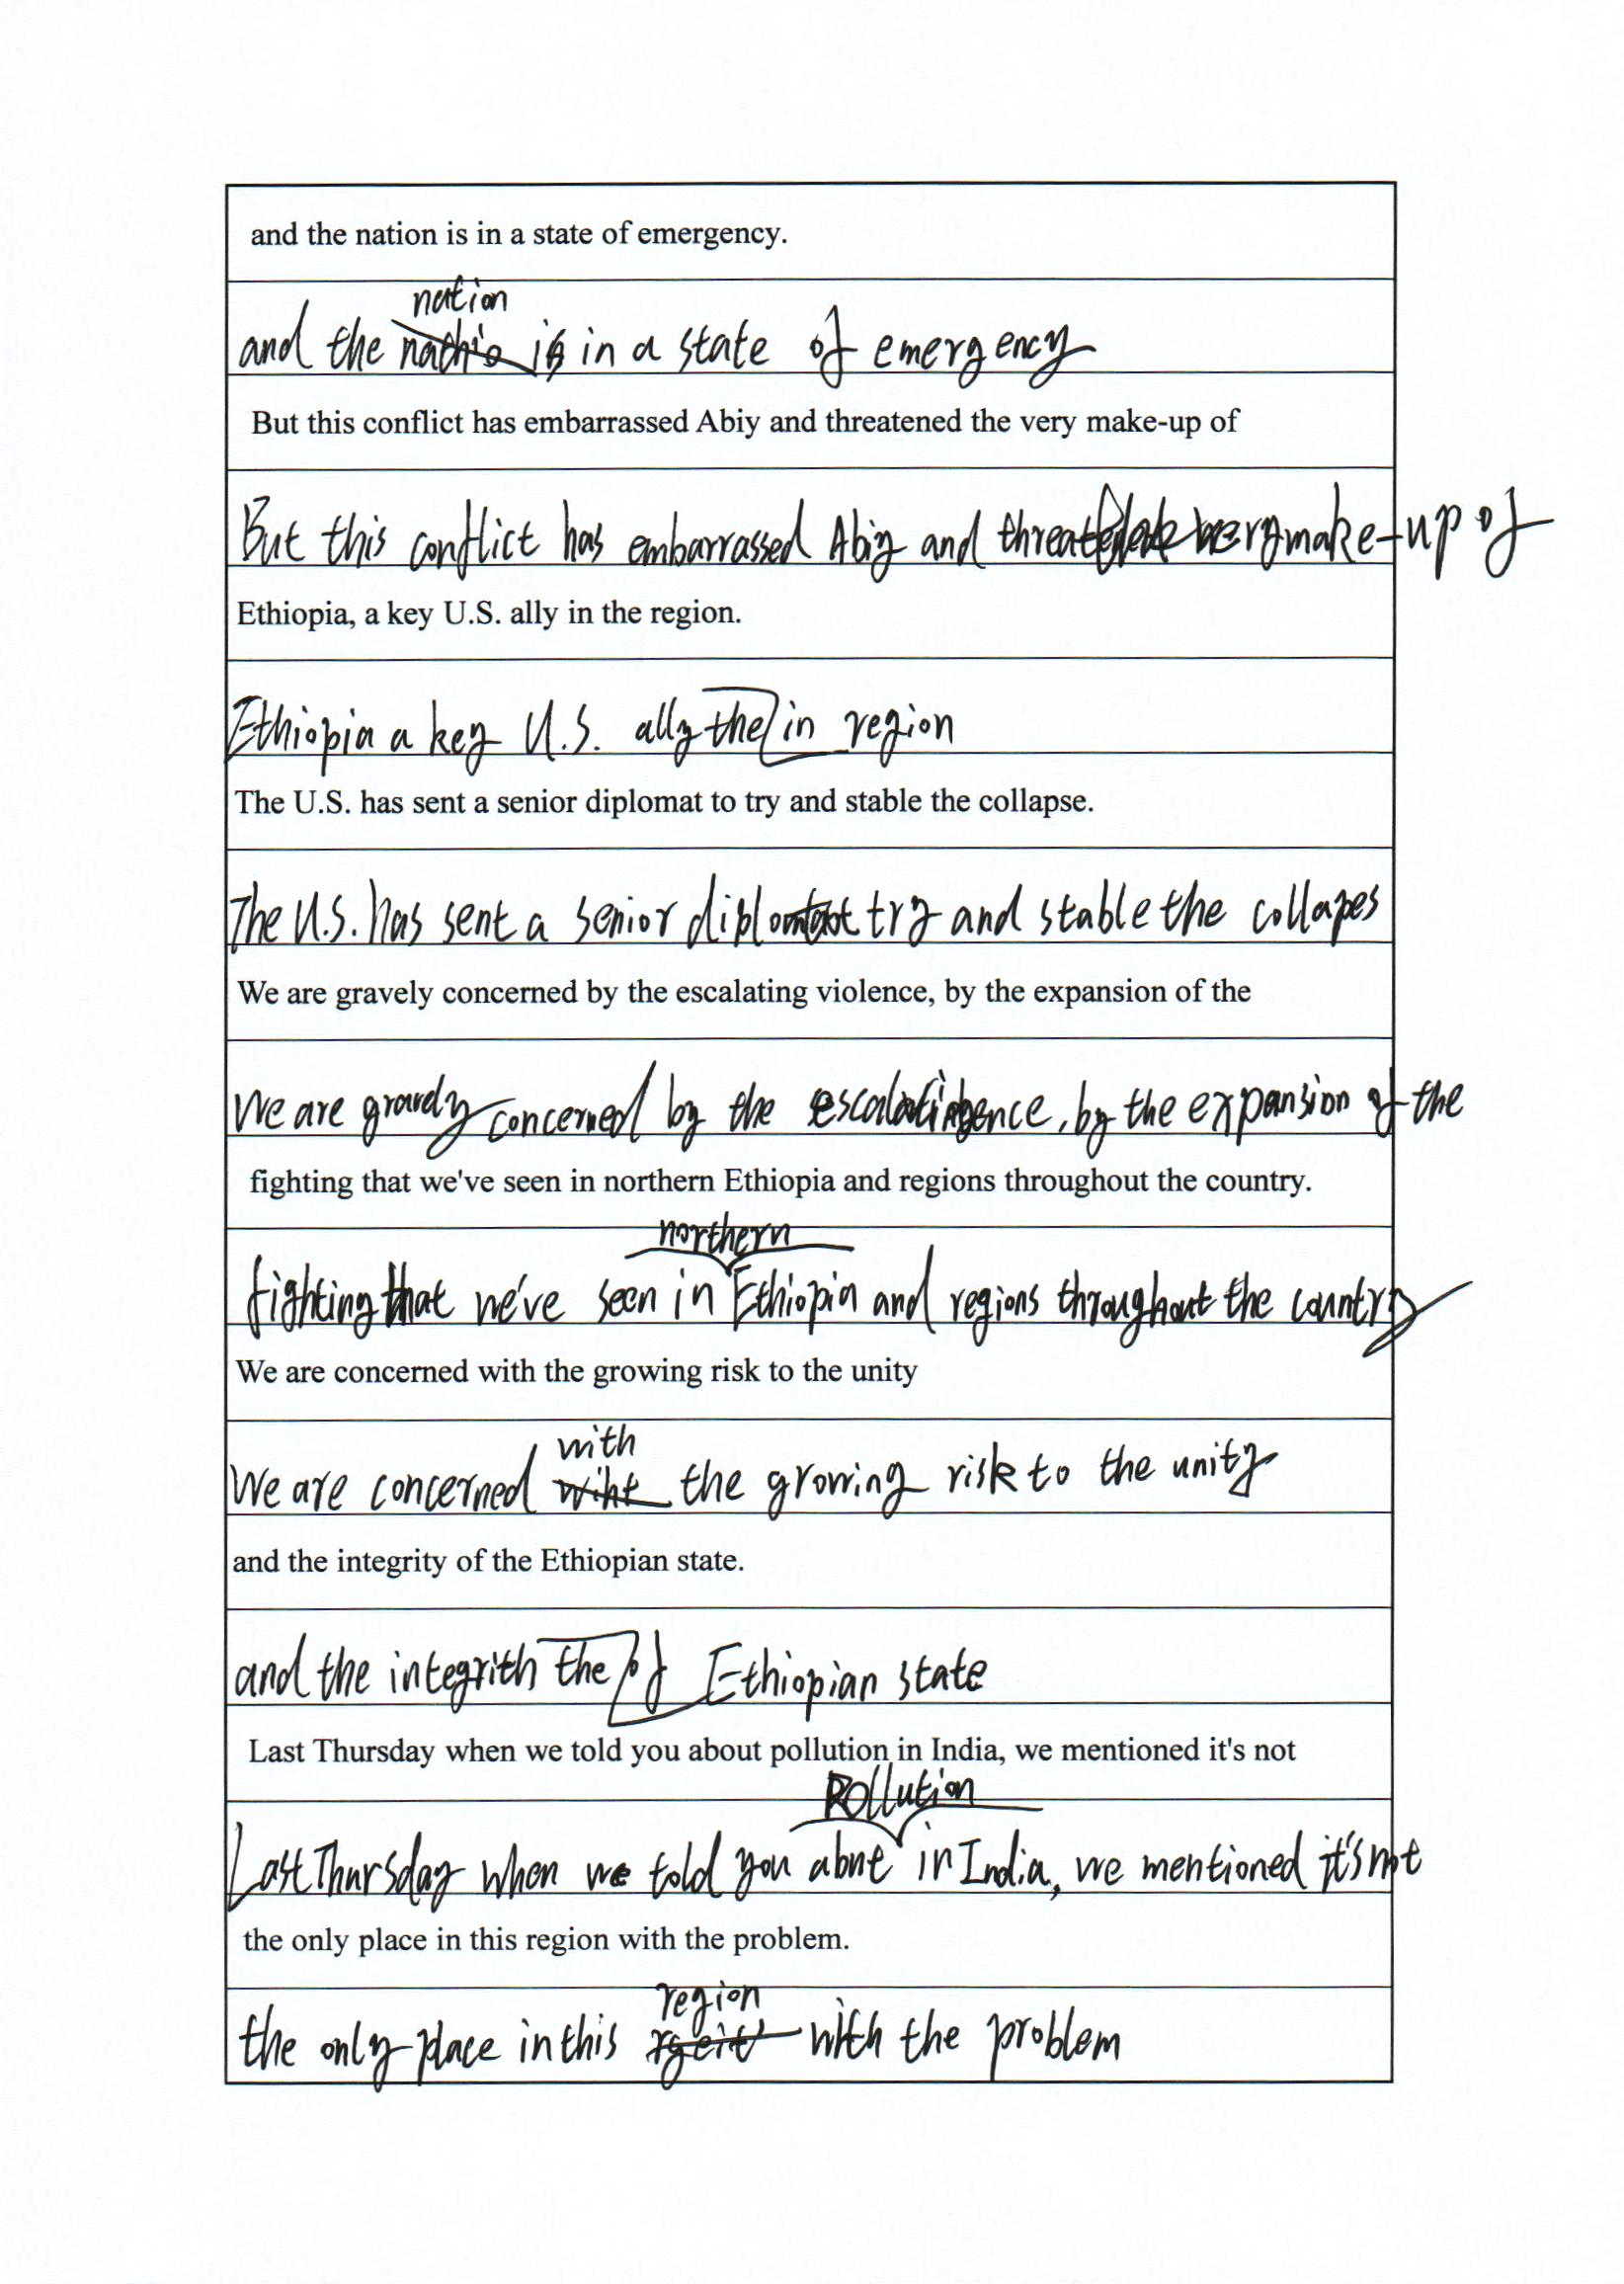 and the nation is in a state of emergency.
nation
and the nathio is in a state of emergency
But this conflict has embarrassed Abiy and threatened the very make-up of
But this conflict has embarrassed Abiy and make-up of
Ethiopia, a key U.S. ally in the region.
Ethiopia a key U.S. ally the in region
The U.S. has sent a senior diplomat to try and stable the collapse.
The U.S. has sent a senior try and stable the collapes
We are gravely concerned by the escalating violence, by the expansion of the
We are gravely concerned by the by the expansion of the
fighting that we've seen in northern Ethiopia and regions throughout the country.
northern
fighting that we've seen in Ethiopia and regions throughout the country
We are concerned with the growing risk to the unity
with
We are concerned wiht the growing risk to the unity
and the integrity of the Ethiopian state.
and the integrith the of Ethiopian state
Last Thursday when we told you about pollution in India, we mentioned it's not
Pollution
Last Thursday when we told you abut in India, we mentioned it's not
the only place in this region with the problem.
region
the only place in this with the problem